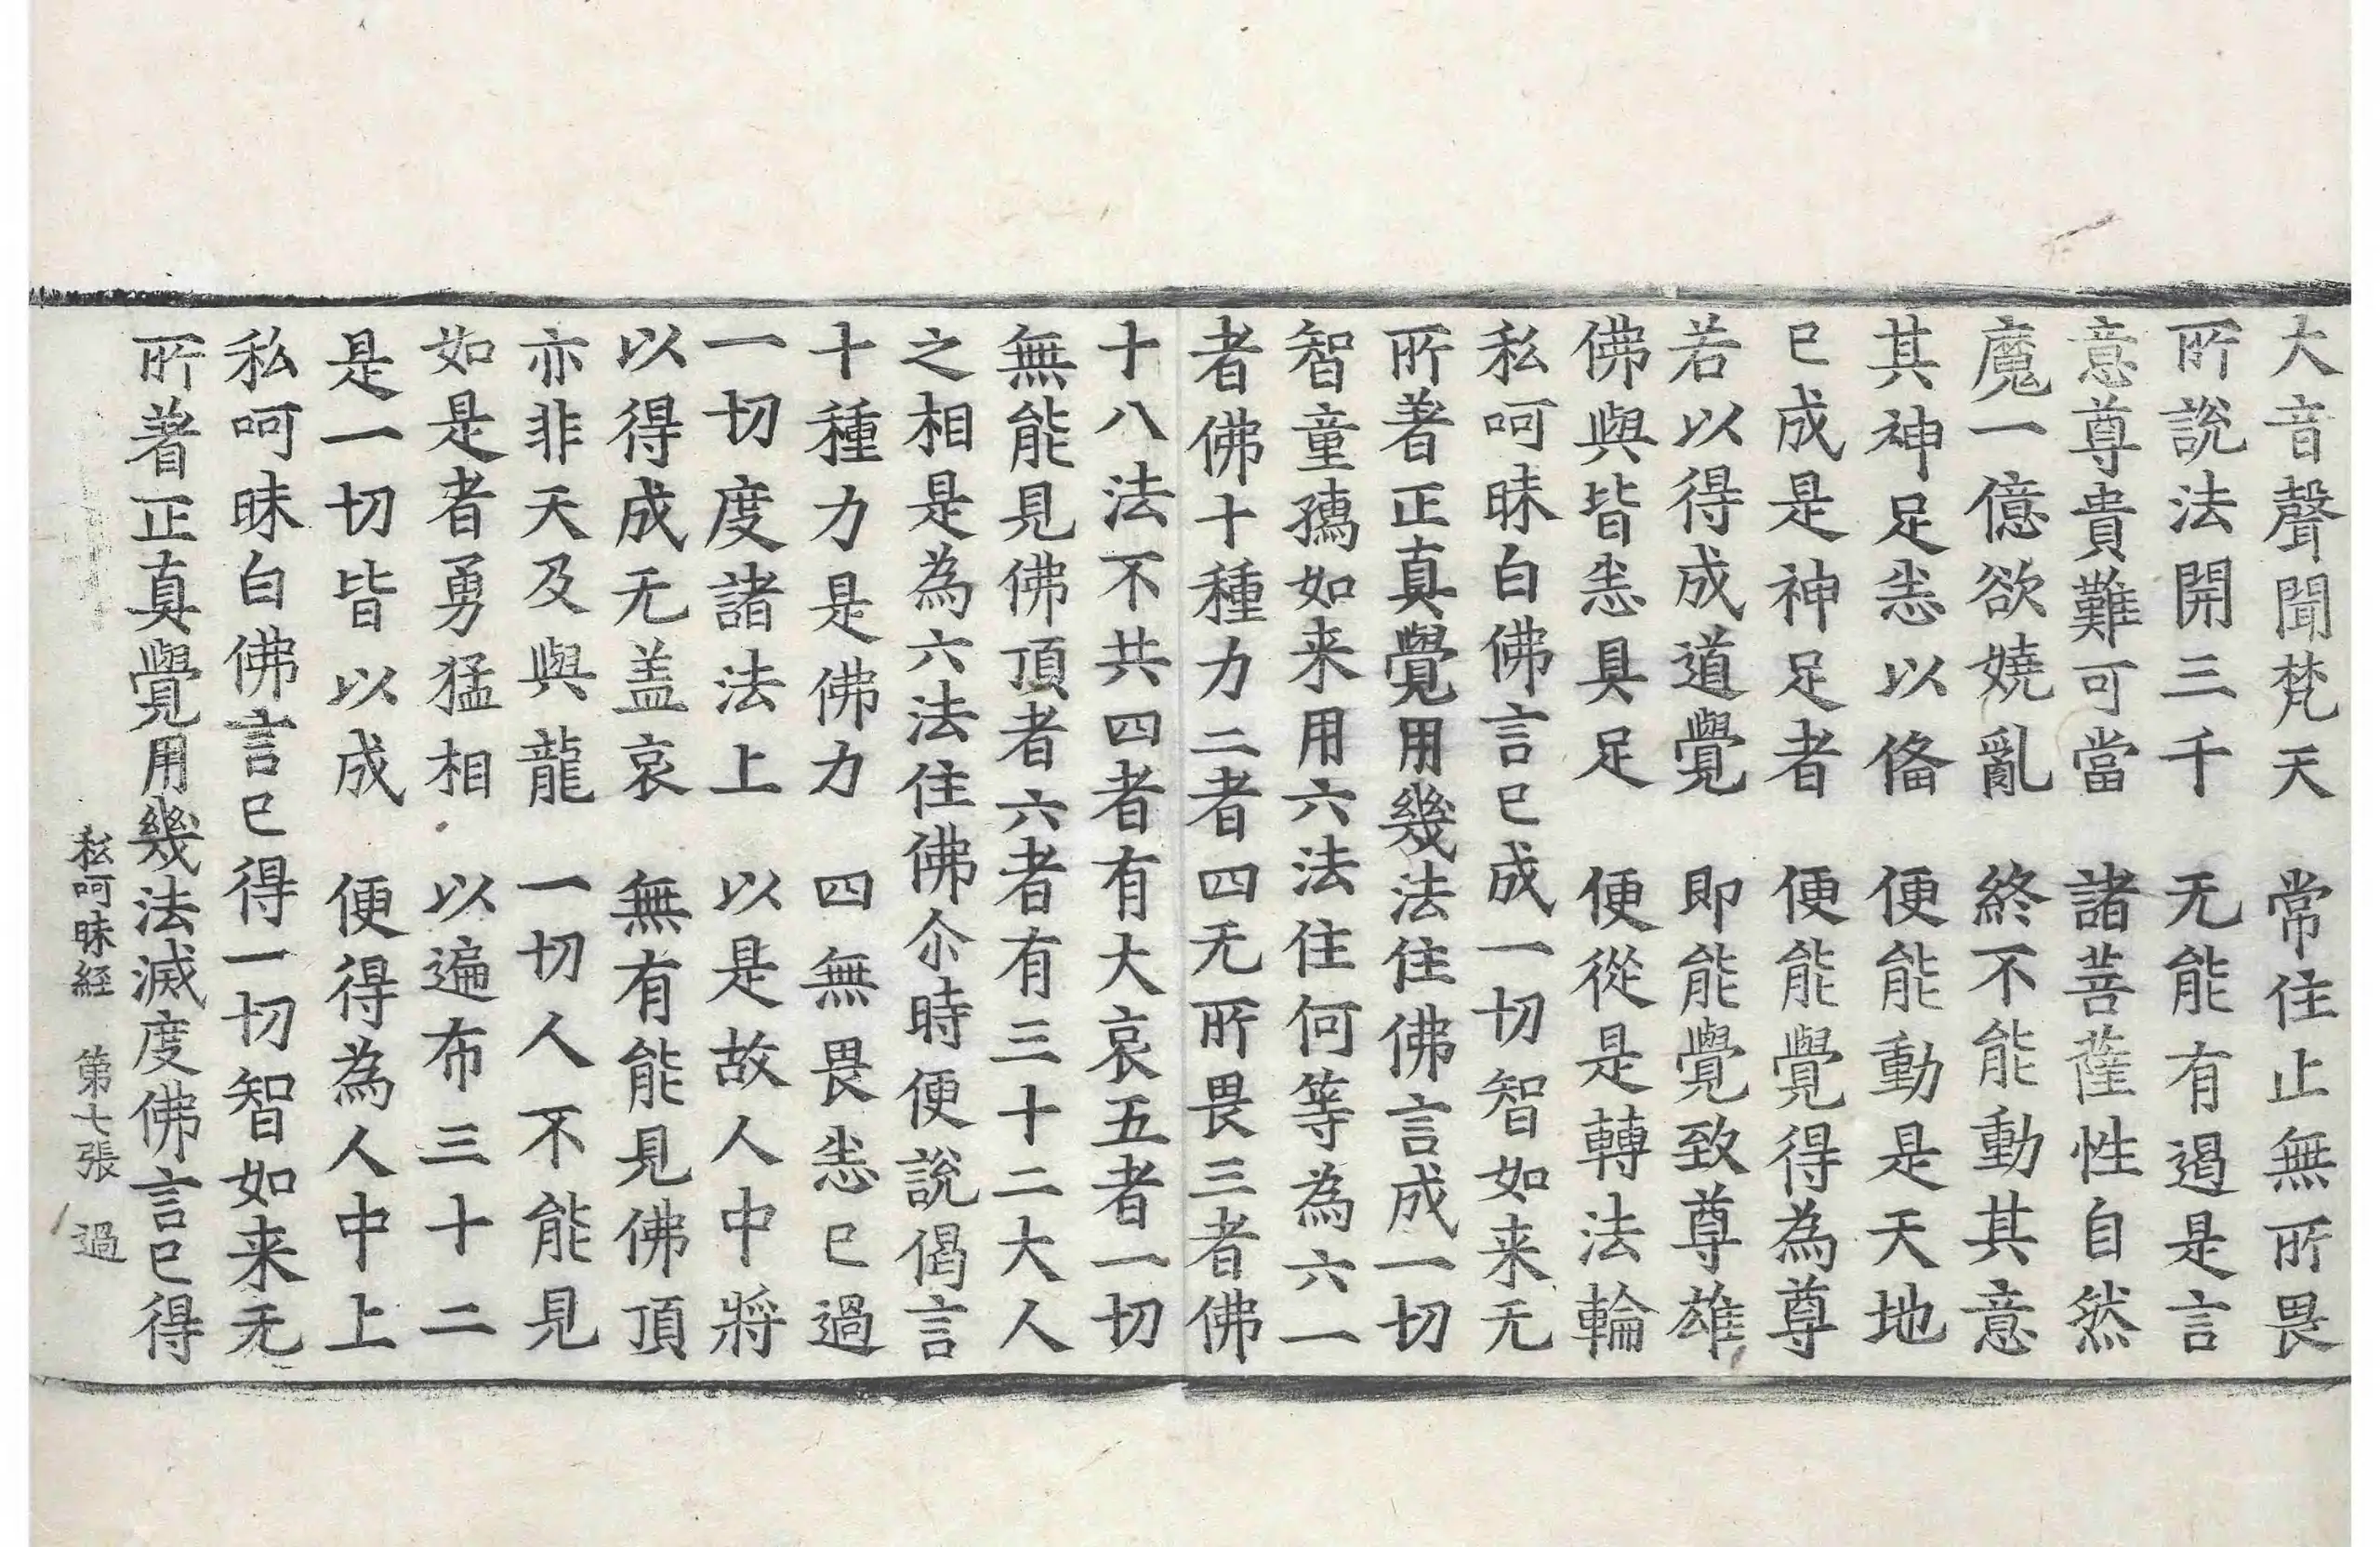 大音聲聞梵天　常住止無所畏
所說法開三千　无能有遏是言
意尊貴難可當　諸菩薩性自然
魔一億欲嬈亂　終不能動其意
其神足恙以俻　便能動是天地
已成是神足者　便能覺得為尊
若以得成道覺　即能覺致尊雄
佛與皆恙具足　便從是轉法輪
私呵昧白佛言已成一切智如来无
所著正真覺用幾法住佛言成一切
智童孺如来用六法住何等為六一
者佛十種力二者四无所畏三者佛
十八法不共四者有大哀五者一切
無能見佛頂者六者有三十二大人
之相是為六法住佛尒時便說偈言
十種力是佛力　四無畏恙已過
一切度諸法上　以是故人中將
以得成无盖哀　無有能見佛頂
亦非天及與龍　一切人不能見
如是者勇猛相　以遍布三十二
是一切皆以成　便得為人中上
私呵昧白佛言已得一切智如来无
所著正真覺用幾法滅度佛言已得
私呵昧経　第七張　過